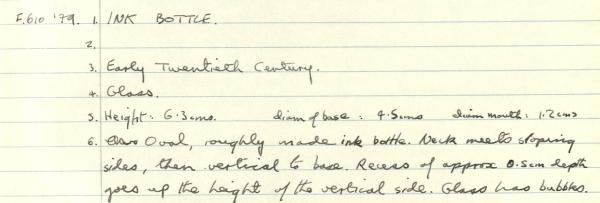 F.610 '79. 1. INK BOTTLE.
2.
3. Early Twentieth Century.
4. Glass.
5. Height: 6.3cms. diam of base: 4.5cms diam mouth: 1.2cms
6. Oval, roughly made ink bottle. Neck meets sloping
sides, then vertical to base. Recess of approx 0.5cm depth
goes up the height of the vertical side. Glass has bubbles.